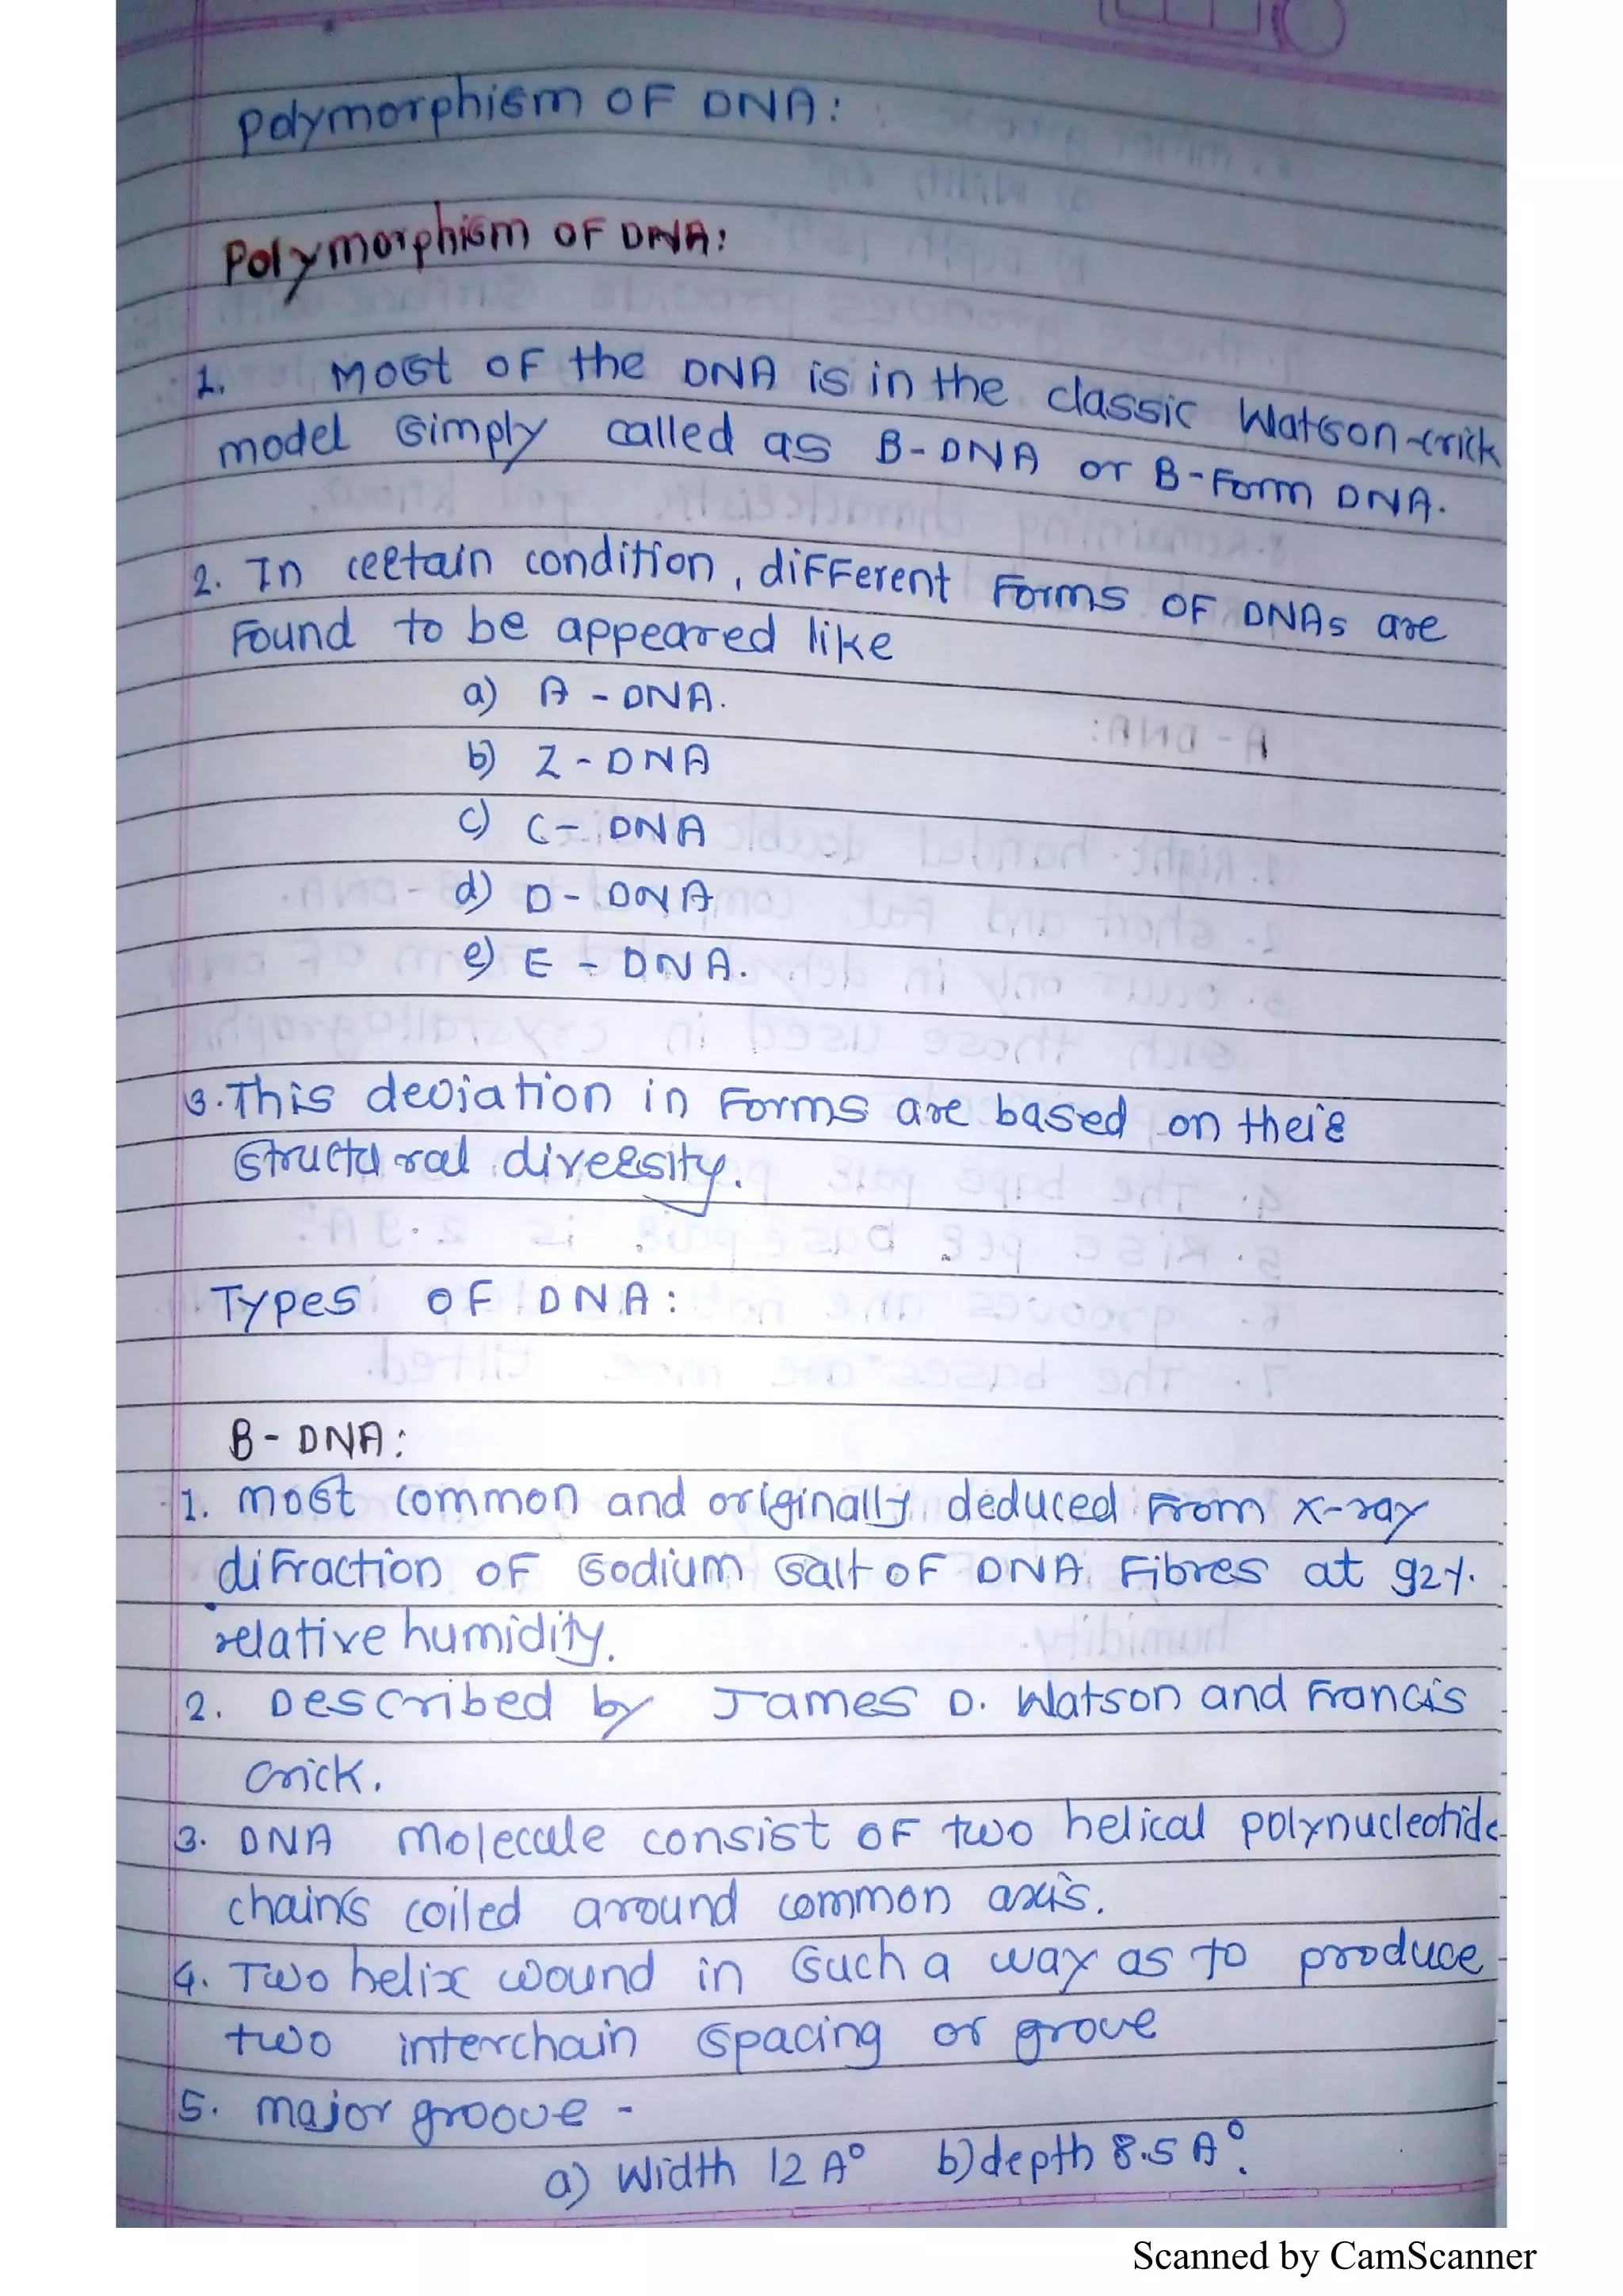 Polymorphism OF DNA:
Polymorphism OF DNA:
1. Most OF the DNA is in the classic Watson-crick
model simply called as B-DNA or B-Form DNA.
2. In certain condition, different Forms OF DNAs are
Found to be appeared like
a) A - DNA.
b) Z - DNA
c) C - DNA
d) D - DNA
e) E - DNA.
3. This deviation in Forms are based on their
structural diversity.
Types OF DNA:
B - DNA:
1. most common and originally deduced From X-ray
difraction OF sodium salt OF DNA Fibres at 92%
relative humidity.
2. Described by James D. Watson and Francis
crick.
3. DNA molecule consist OF two helical polynucleotide
chains coiled around common axis.
4. Two helix wound in such a way as to produce
two interchain spacing or grove
5. major groove -
a) Width 12 A° b) depth 8.5 A°.
Scanned by CamScanner